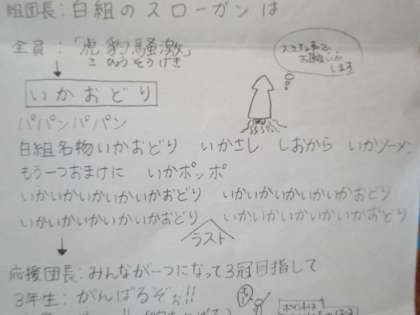 組団長:白組のスローガンは
全員:「虎豹騒激」
こひょうそうげき
いかおどり
パパンパパン
白組名物いかおどり いかさし しおから いかソーメン
もう一つおまけに いかポッポ
いかいかいかいかいかおどり いかいかいかいかいかおどり
いかいかいかいかいかおどり いかいかいかいかいかおどり
ラスト
応援団長:みんなが一つになって3冠目指して
3年生:がんばるぞぉ!!
ポイントは